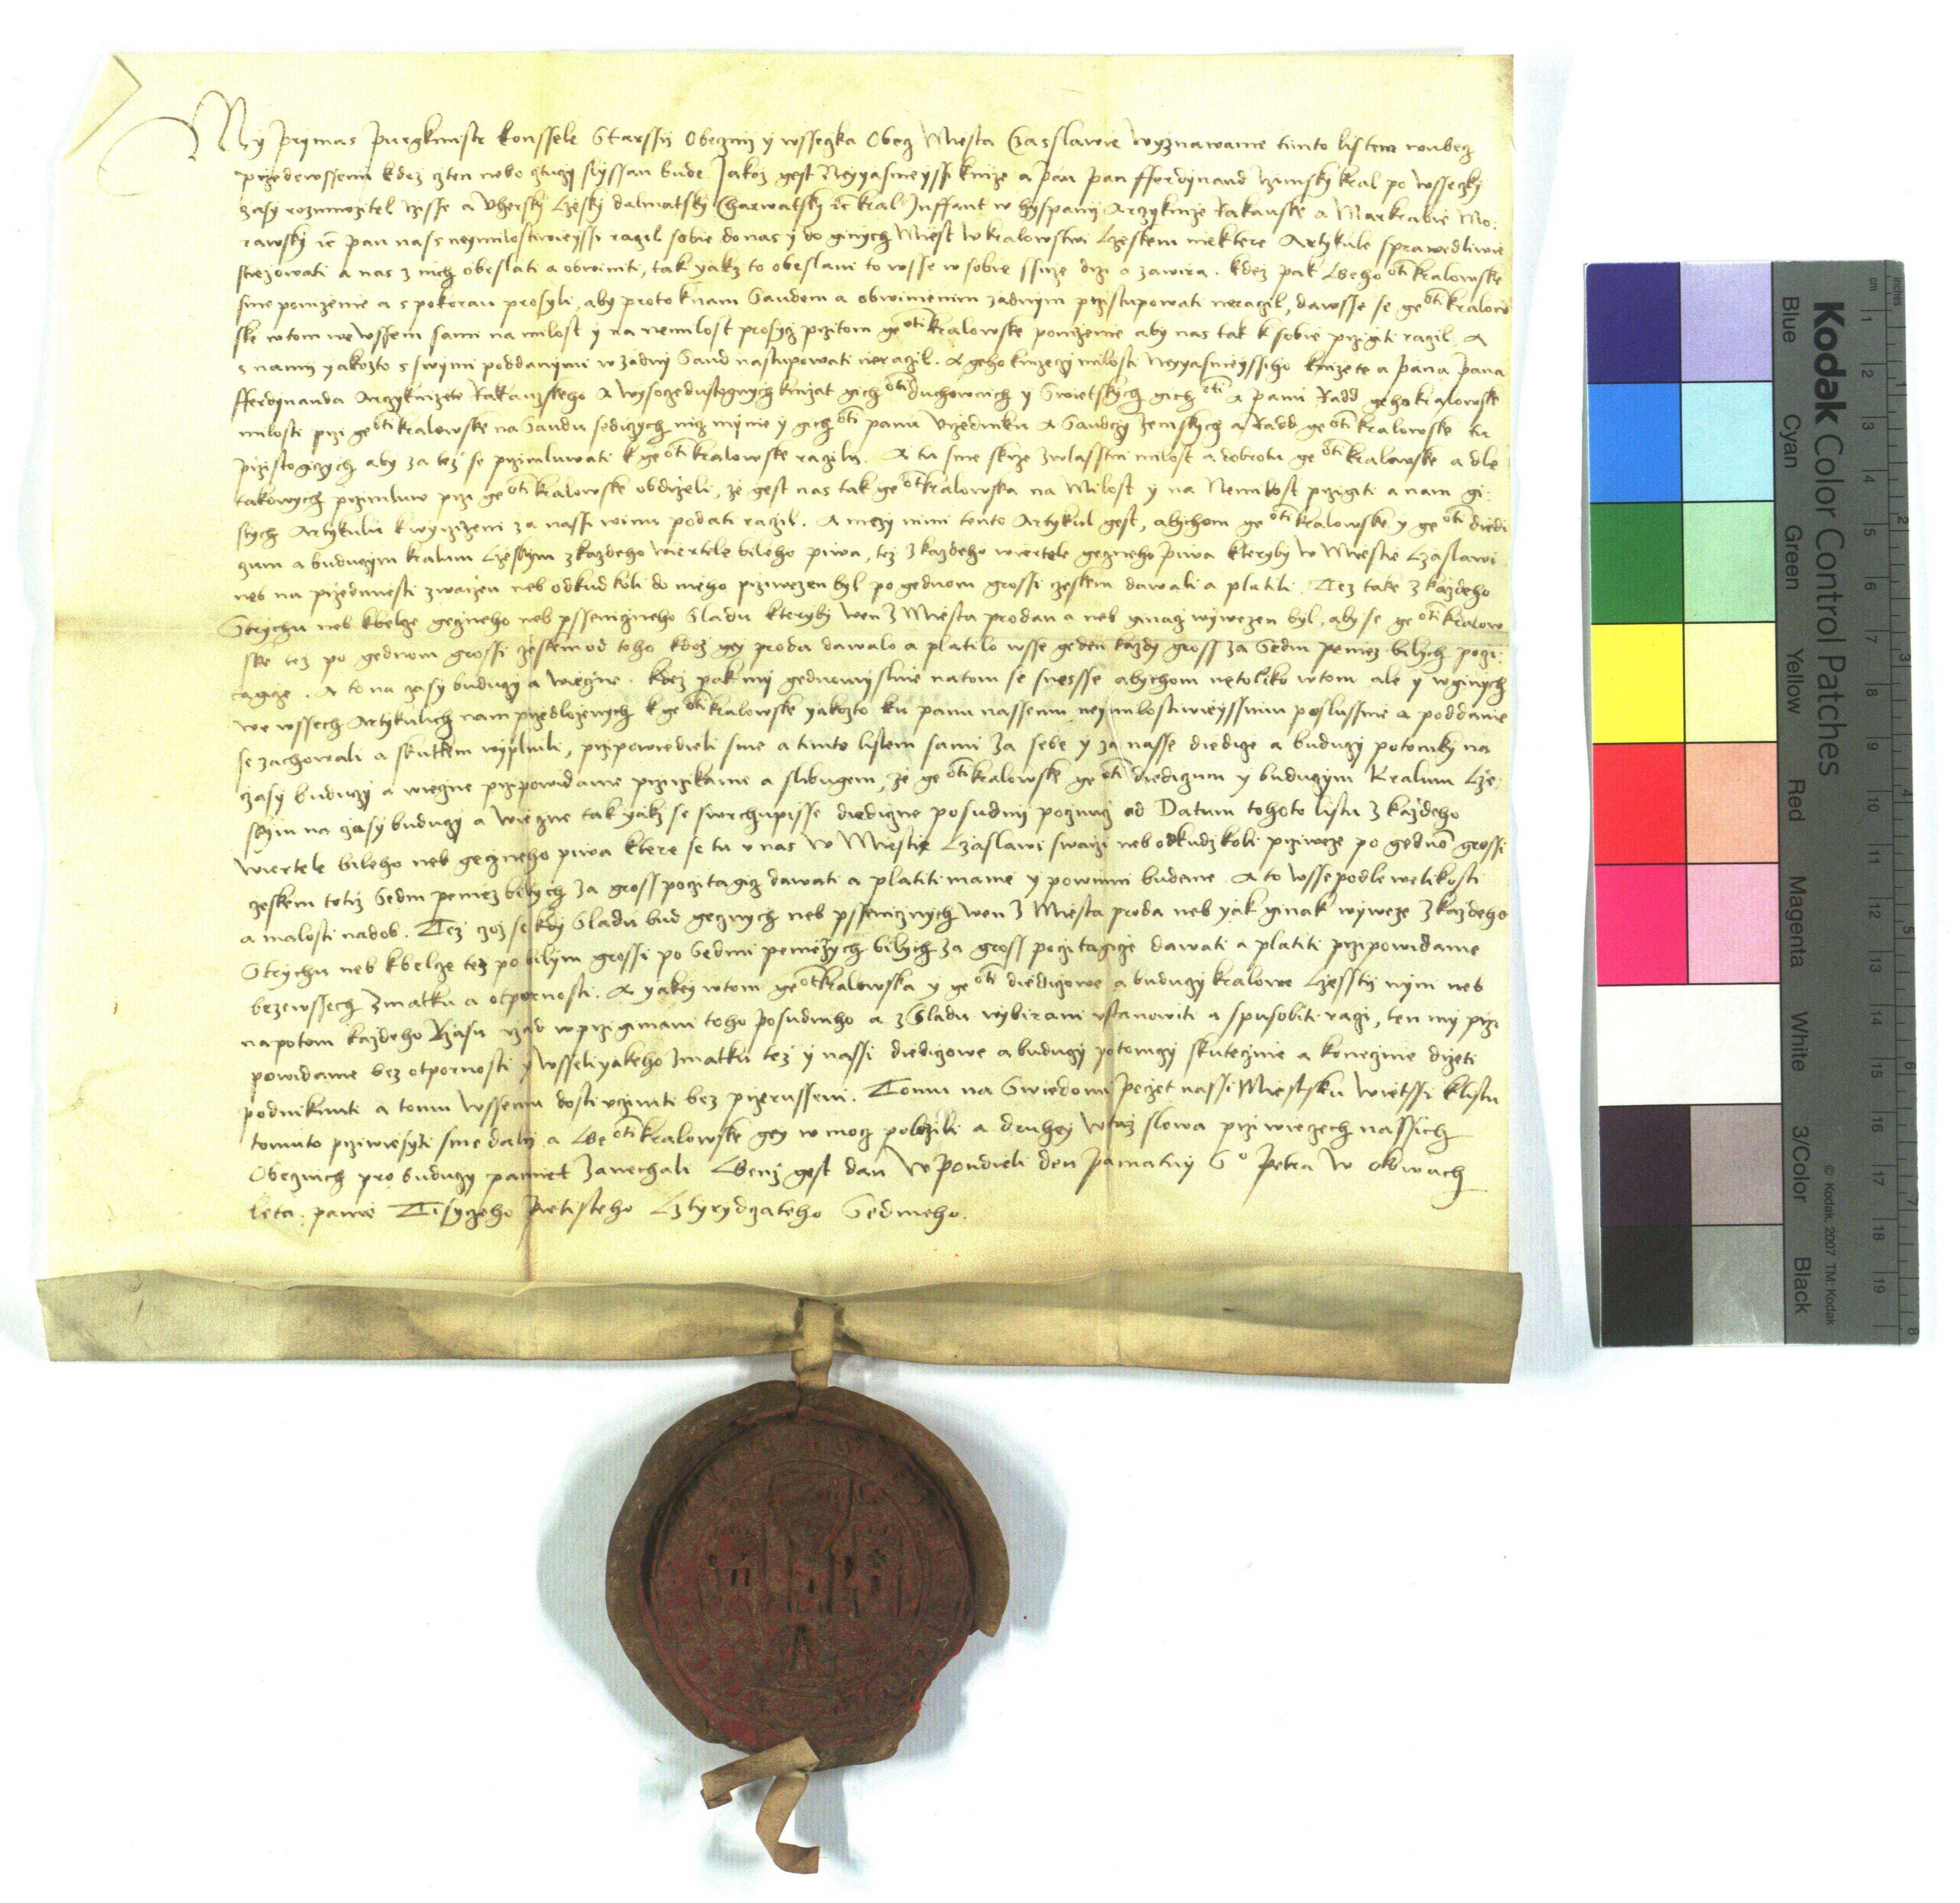 My Prymas Purgkmistr konssele Starssij Obecznij y wsseczka Obecz Miesta Czaslawie wyznawame timto listem wubecz
przedewssemi kdez czten nebo cztuczy slyssan bude Jakoz gest Neyyasnieyssi knize a Pan Pan fferdynand Rzimsky kral po wsseczky
czasy rozmnozitel Rzisse a Vhersky Czesky dalmatsky Charwatsky rc kral Inffant w hyspanij Arczyknize Rakauske a Markrabie Mo:
rawsky rc Pan nass neymilostiwieyssi raczil sobie do nas y do ginych Miest w kralowstwi Czeskem niektere Artykule sprawedliwie
stiezowati a nas z nich obeslati a obwiniti, tak yakz to obeslani to wsse w sobie ssirze drzi a zawira. kdez pak Geho Mti kralowske
sme ponizenie a s pokorau prosyli, aby proto k nam Saudem a obwinienim zadnym przistupowati neraczil, dawsse se ge Mti kralow
ske w tom we wssem sami na milost y na nemilost prosycz przitom ge Mti kralowske ponizenie aby nas tak k sobie przigiti raczil. A
s namy yakozto s swymi poddanymi w zadny Saud nastupowati neraczil. A geho knizeczy milosti Neyyasnieyssiho knizete a Pana Pana
fferdynanda Arczyknizete Rakauzskeho A wysoczedustognych knizat gich Mti duchownich y Swietskych gich Mti A Panu Radd geho kralowske
milosti przi ge Mti kralowske na Saudu sediczych nizmynie y gich Mti panu Vrzedniku A Saudczy Zemskych a Radd ge Mti kralowske tu
przistogiczych aby za tez se przimluwati k ge Mti kralowske raczily. A tu sme skrze zwlasstni milost a dobrotu ge Mti kralowske a dle
takowych przimluw przi ge Mti kralowske obdrzeli, ze gest nas tak ge Mt kralowska na Milost y na Nemilost przigiti a nam gi:
stych Artykulu k wyrzizeni za nassi winu podati raczil. A mezy nimi tento Artykul gest, abychom ge Mti kralowske y ge Mti diedi
czum a buduczym kralum Czeskym z kazdeho wiertele bileho piwa, tez z kazdeho wiertele geczneho piwa kteryby w Miestie Czaslawi
neb na przedmiesti zwarzen neb odkud koli do nieho prziwezen byl po gednom grossi czeskem dawali a platili. Tez take z kazdeho
Strychu neb kbelcze geczneho neb psseniczneho Sladu kteryby wen z Miesta prodan a neb ginacz wywezen byl, aby se ge Mti kralow
ske tez po gednom grossi czeskem od toho kdoz gey proda dawalo a platilo wsse geden kazdy gross za Sedm peniez bilych poczi:
tagicze. A to na czasy buduczy a wieczne. kdez pak my gednomyslnie na tom se snessse abychom netoliko w tom ale y w ginych
we wssech Artykulich nam przedlozenych k ge Mti kralowske yakozto ku panu nassemu neymilostiwieyssimu poslussnie a poddanie
se zachowali a skutkem wyplnili, przipowiedieli sme a timto listem sami za sebe y za nasse diedicze a buduczy potomky na
czasy buduczy a wieczne przipowidame przirzikame a slibugem, ze ge Mti kralowske ge Mti diediczum y buduczym Kralum Cze:
skym na czasy buduczy a wieczne tak yakz se swrchupisse diediczne posudny poczniucz od Datum tohoto listu z kazdeho
wiertele bileho neb geczneho piwa ktere se tu v nas w Miestie Czaslawi swarzi neb odkudzkoli prziweze po gednom grossi
czeskem totiz Sedm peniez bilych za gross poczitagicz dawati a platiti mame y powinni budeme. A to wsse podle welikosti
a malosti nadob. Tez czoz se kdy Sladu bud gecznych neb psseniczných wen z Miesta proda neb yak ginak wyweze z kazdeho
Strychu neb kbelcze tez po bilym grossi po Sedmi peniezych bilych za gross poczitagicze dawati a platiti przipowidame
bezewssech zmatku a otpornosti. A yakey w tom ge Mt kralowska y ge Mti diediczowe a buduczy kralowe Czesstij nyni neb
napotom kazdeho Czasu rzad w przigimani toho Posudniho a z Sladu wybirani vstanowiti a spusobiti raczi, ten my przi
powidame bez otpornosti y wsseliyakeho zmatku tez y nassi diediczowe a buduczy potomczy skutecznie a konecznie drzeti
podniknuti a tomu wssemu dosti vcziniti bez przerusseni. Tomu na Swiedomi Peczet nassi Miestsku wietssi k listu
tomuto prziwiesyti sme dali a Ge Mti kralowske gey w mocz polozili a druhey w taz slowa przi wieczech nassich
Obecznich pro buduczy pamiet zanechali Genz gest dan w Pondieli den Pamatny So Petra w okowach
leta panie Tisyczeho Pietisteho Cztyrydczateho Sedmeho.
Kodak Color Control Patches
Blue Cyan Green Yellow Red Magenta White 3/Color Black
© Kodak, 2007 TM: Kodak
inches 1 2 3 4 5 6 7 8
cm 1 2 3 4 5 6 7 8 9 10 11 12 13 14 15 16 17 18 19